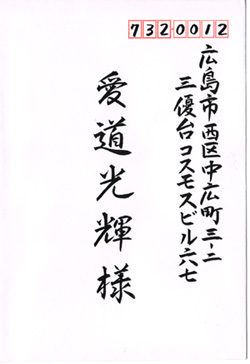 7320012
広島市西区中広町三-二
三優台コスモスビル六七
愛道光輝様